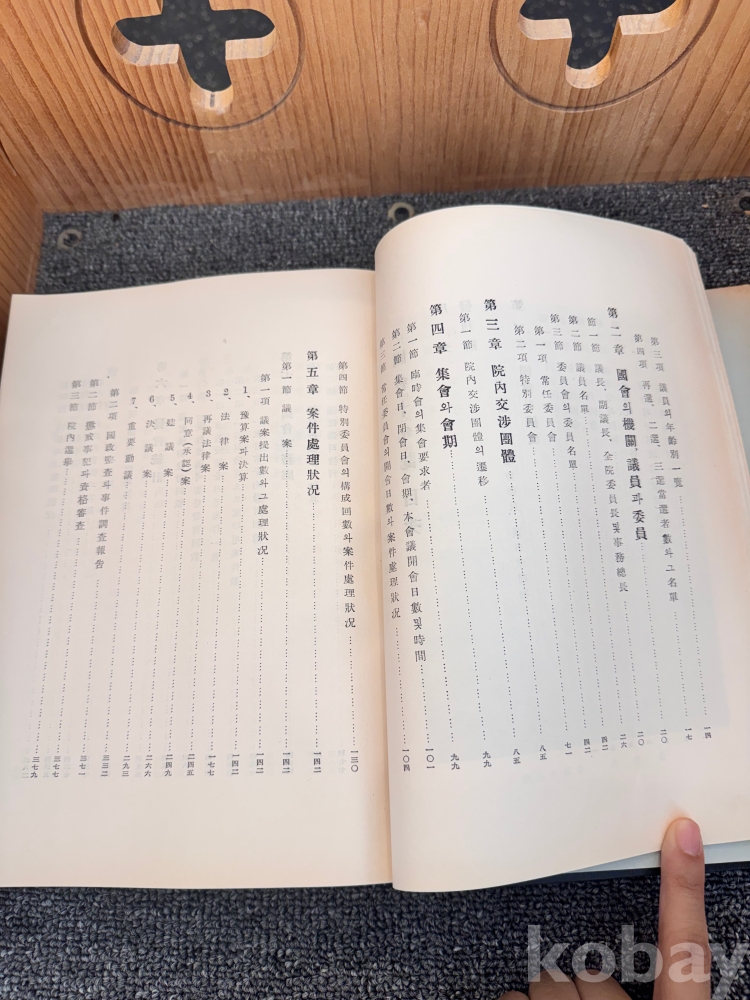 第三項 議員의年齡別一覽 一四
第四項 再選、二選、三選當選者數와그名單 一七
第二章 國會의機關、議員과委員 二〇
第一節 議長、副議長、全院委員長및事務總長 二六
第二節 議員名單 四二
第三節 委員會의委員名單 七一
第一項 常任委員會 八五
第二項 特別委員會 八五
第三章 院內交涉團體 九九
第一節 院內交涉團體의遷移 九九
第四章 集會와會期
第一節 臨時會의集會要求者 一〇一
第二節 集會日、開會日、會期、本會議開會日數및時間
第三節 常任委員會의開會日數와案件處理狀況 一〇四
第四節 特別委員會의構成回數와案件處理狀況 一三〇
第五章 案件處理狀況 一四二
第一節 議案 一四二
第一項 議案提出數와그處理狀況 一四二
1、豫算案과決算 一四二
2、法律案 一四九
3、再議法律案 一七七
4、同意(承認)案 二四五
5、建議案 二四九
6、決議案 二六六
7、重要動議 二九三
第二項 國政監査와事件調查報告 三三二
第二節 懲戒事犯과資格審查 三七一
第三節 院內選擧 三七九
kobay